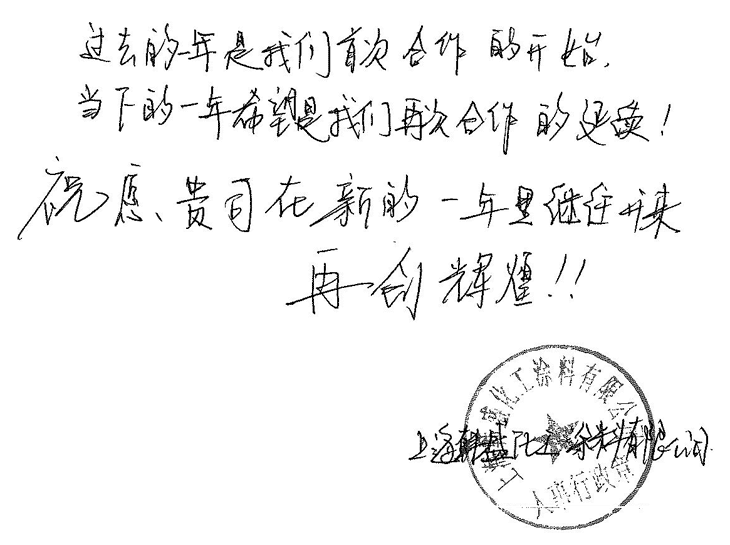 过去的一年是我们首次合作的开始.
当下的一年希望是我们再次合作的延续!
祝愿、贵司在新的一年里继往开来
再创辉煌!!
上海 化工涂料有限公司
上 化工涂料有限公司
人事行政章